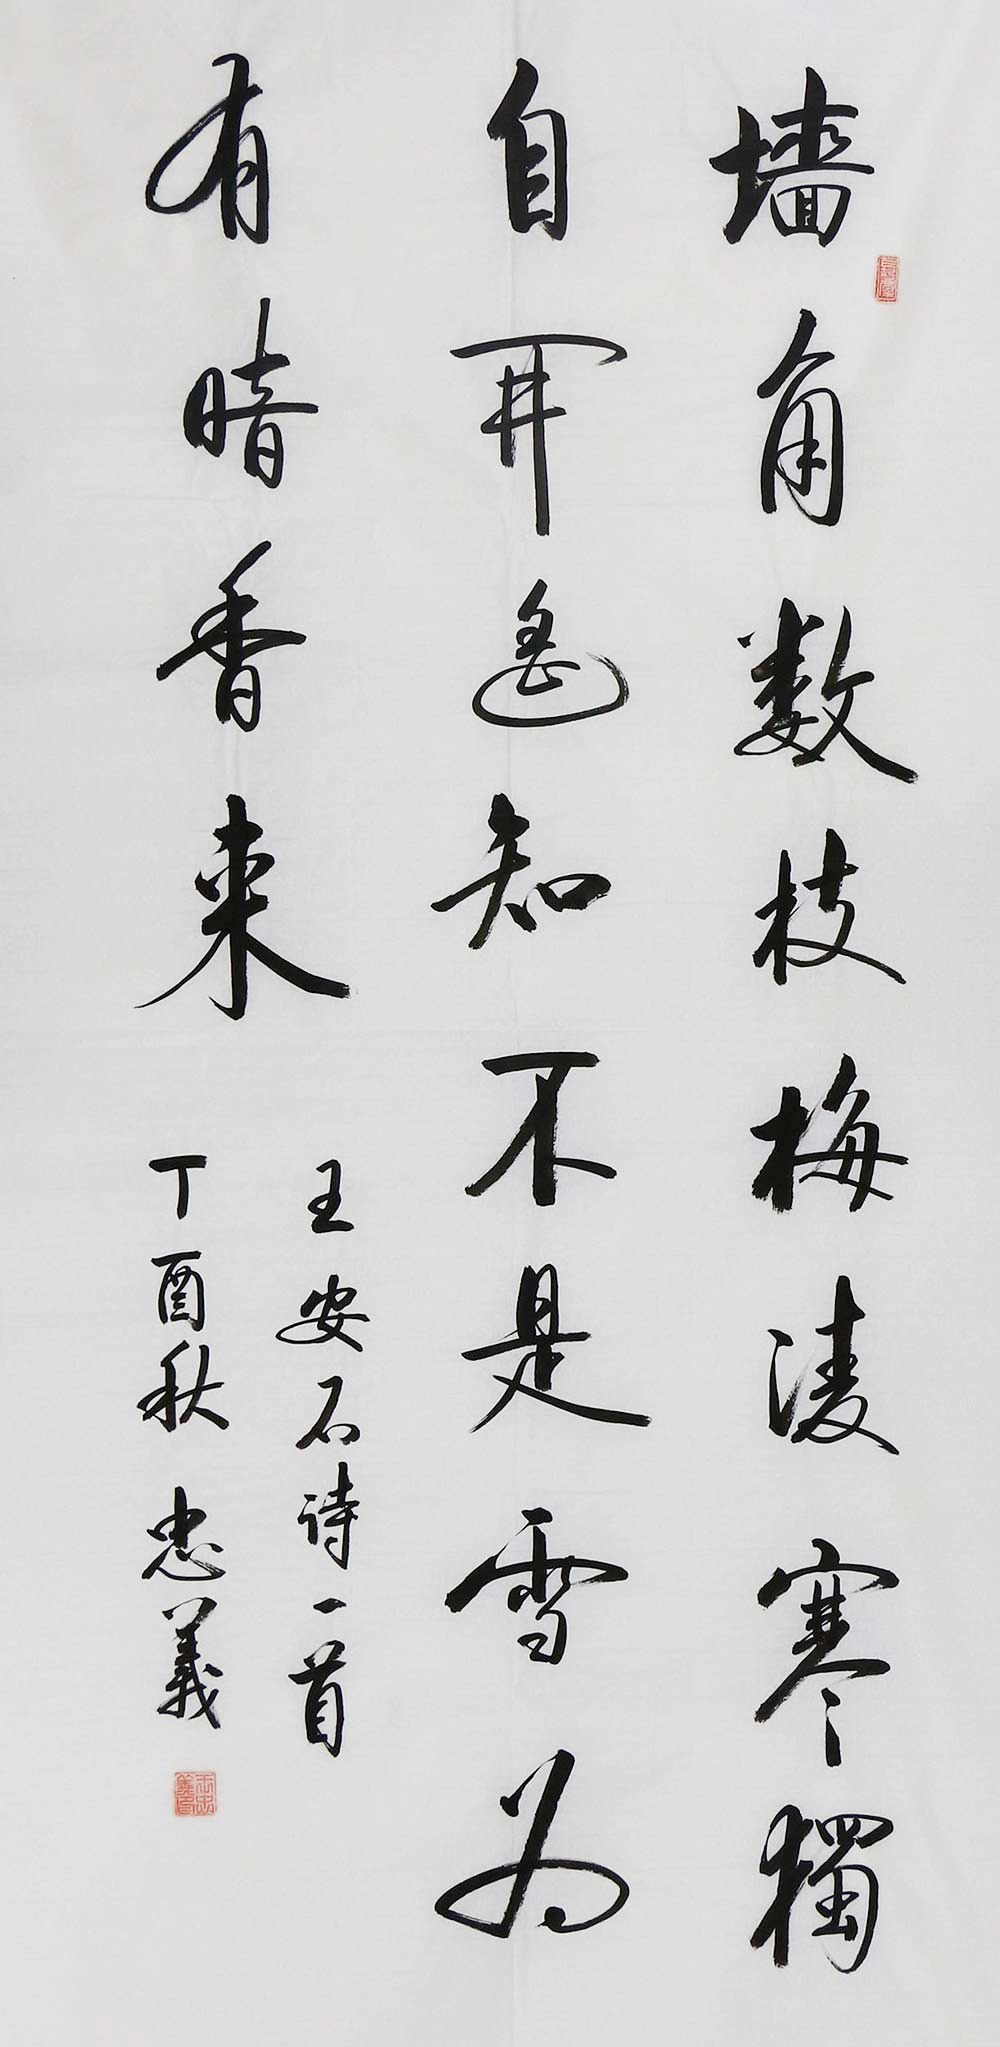 墙角数枝梅凌寒獨
自开遥知不是雪为
有暗香来
王安石诗一首
丁酉秋 忠義